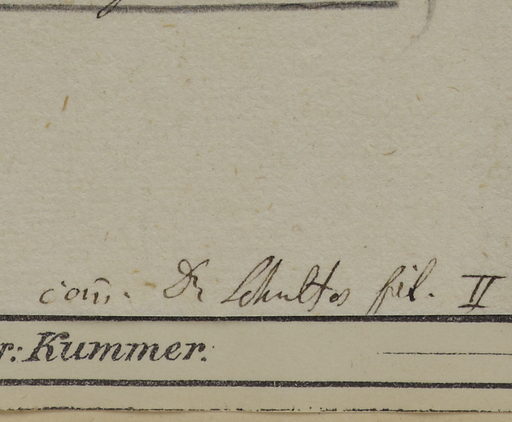 com̄. Dr Schultes fil. II
r: Kummer.